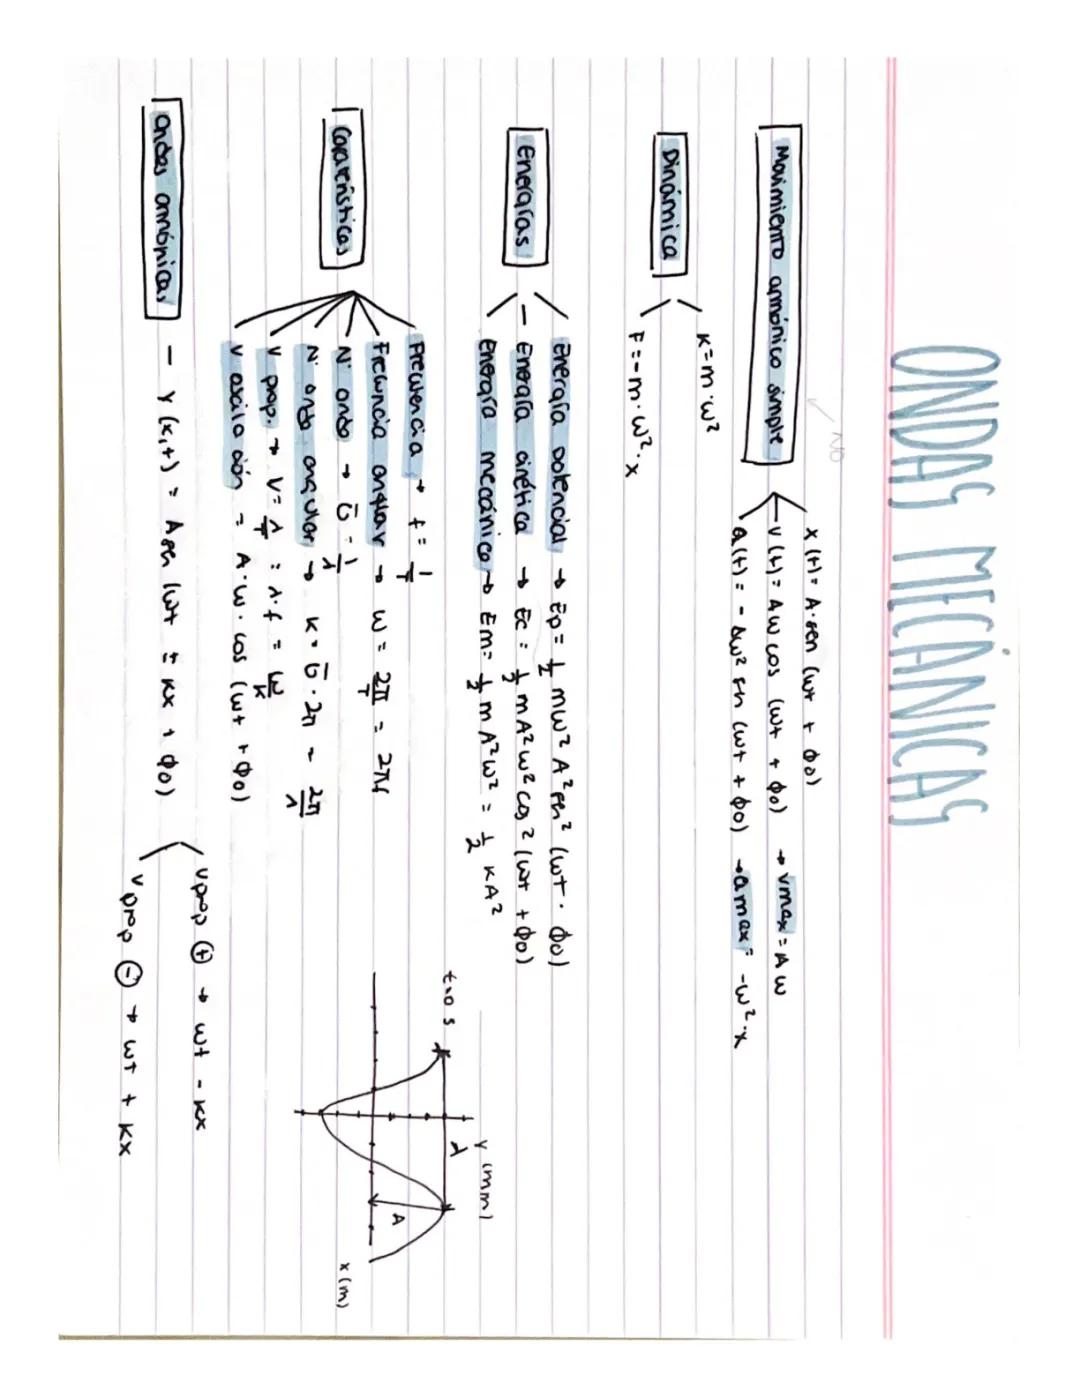 ONDAS MECÁNICAS
NO
Movimiento armónico simple
x(t) = A·sen (wt + ϕ0)
v(t) = Aw cos (wt + ϕ0) → vmax = Aw
a(t) = -Aw² sen (wt + ϕ0) → amax = -w²·x
Dinámica
K = m·w²
F = -m·w²·x
Energías
Energía potencial → Ep = 1/2 mw²A² sen² (wt · ϕ0)
Energía cinética → Ec = 1/2 mA²w² cos² (wt + ϕ0)
Energía mecánica → Em = 1/2 mA²w² = 1/2 KA²
Características
Frecuencia → f = 1/T
Frecuencia angular → w = 2π/T = 2πf
Nº onda → ν̄ = 1/λ
Nº onda angular → K = ν̄·2π = 2π/λ
v prop. → v = λ/T = λ·f = w/K
v oscilación = A·w·cos (wt + ϕ0)
t=0 s
y (mm)
λ
A
x (m)
Ondas armónicas - y(x,t) = A sen (wt ± Kx + ϕ0)
v prop (+) → wt - Kx
v prop (-) → wt + Kx